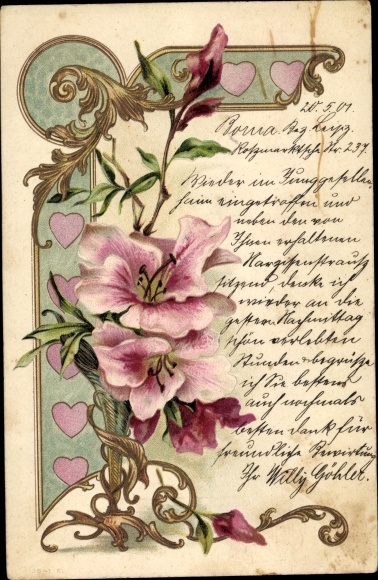 20. 5. 01.
Borna. Bez. Leipz.
Roßmarktsche Str. 237.
Wieder im Junggesellen-
heim eingetroffen und
neben den von
Ihnen erhaltenen
Nargissenstrauß
sitzend, denke ich
wieder an die
gestern Nachmittag
schön verlebten
Stunden & begrüße
ich Sie bestens
auch nochmals
besten Dank für
freundliche Bewirtung
Ihr Willy Göhler.